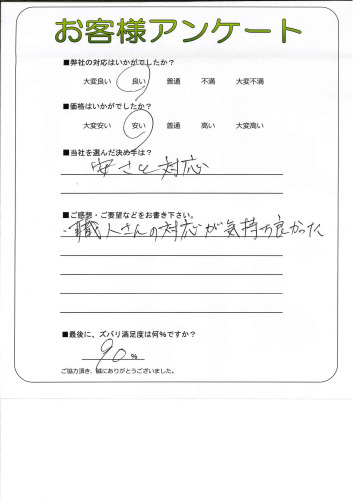 お客様アンケート
■弊社の対応はいかがでしたか？
大変良い 良い 普通 不満 大変不満
■価格はいかがでしたか？
大変安い 安い 普通 高い 大変高い
■当社を選んだ決め手は？
安さと対応
■ご感想・ご要望などをお書き下さい。
・職人さんの対応が気持ち良かった
■最後に、ズバリ満足度は何%ですか？
90 %
ご協力頂き、誠にありがとうございました。